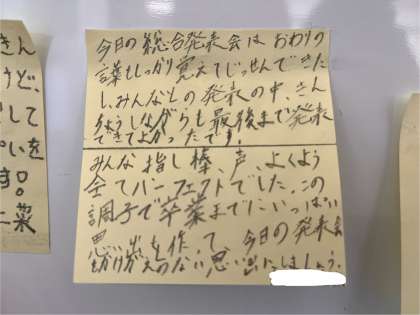 きん
けど、
して
いを
菜
今日の総合発表会はおわりの
言葉もしっかり覚えてじっせんできた
し、みんなとの発表の中、きん
ちょうしながらも最後まで発表
できてよかったです。
みんな指し棒、声、よくよう
全てパーフェクトでした。この
調子で卒業までにいっぱい
思い出を作って、今日の発表会
もかけがえのない思い出にしましょう。